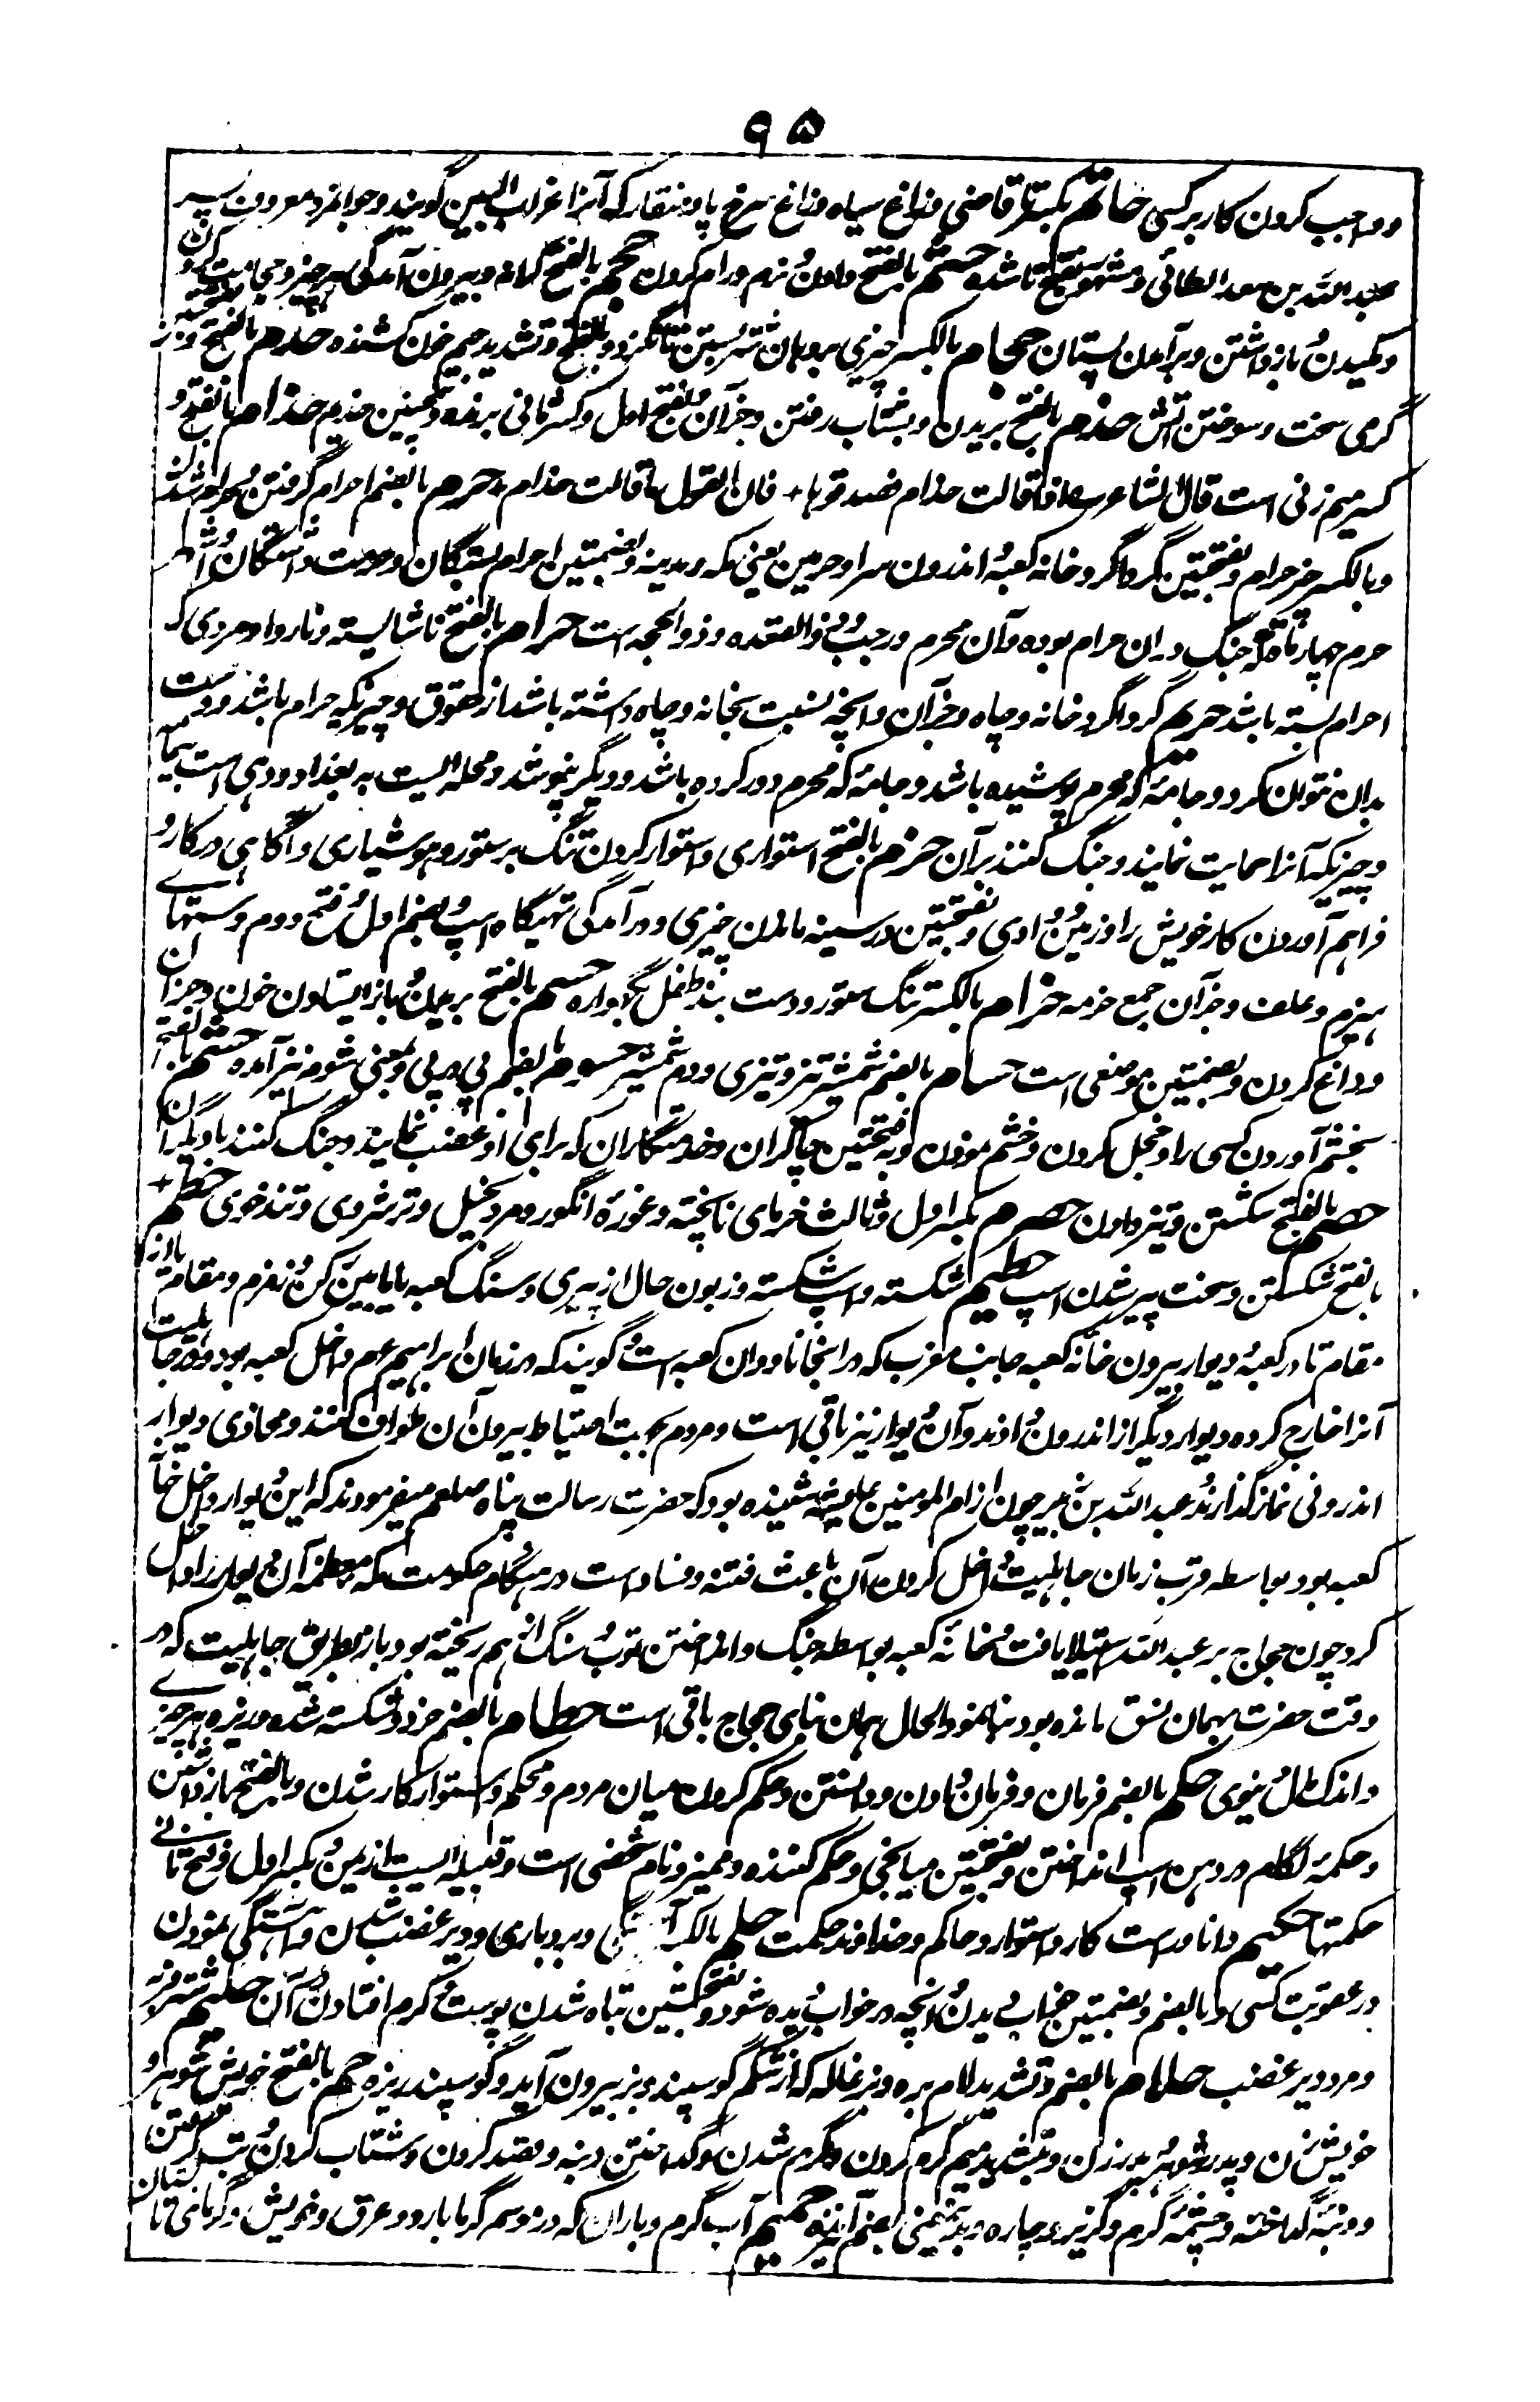 ۹۵
و واجب کردن کار بر کسی حاتم بکسر تا قاضی و زاغ سیاه و زاغ سرخ پا و منقار که آنرا غراب البین گویند و جوانمرد معروف پسر
عبد الله بن سعد الطائی و مشهور بفتح تا شده حتم بالفتح دادن نرم و رام کردن حجم بالفتح کرانه و بیرون آمدگی هر چیز و حجامت کردن
و مکیدن و بازداشتن و برآمدن پستان حجام بالکسر چیزی بر دهان شتر بستن تا نگزد و بالفتح و تشدید جیم خون کشنده حدم بالفتح
گرمی سخت و سوختن آتش حذم بالفتح بریدن و بشتاب رفتن و جز آن و بفتح اول و کسر ثانی برنده و همچنین حذیم حذام بالفتح و
کسر میم زنی است قال الشاعر اذا قالت حذام فصدقوها + فان القول ما قالت حذام + حرم بالضم احرام گرفتن و محرم شدن
و بالکسر چیز حرام و بفتحتین گرداگرد خانه کعبه و اندرون سرا و حرمین یعنی مکه و مدینه و بضمتین احرام بستگان و حرمت داشتگان و اشهر
حرم چهار ماه که جنگ در ان حرام بوده و آن محرم و رجب و ذوالقعده و ذوالحجه است حرام بالفتح ناشایسته و ناروا و مردی که
احرام بسته باشد حریم گرداگرد خانه و چاه و جز آن و آنچه نسبت بخانه و چاه داشته باشد از حقوق و چیزیکه حرام باشد و دست
بدان نتوان کرد و جامه که محرم پوشیده باشد و جامه که محرم دور کرده باشد و دیگر نپوشد و محله ایست به بغداد و دهی است بیمامه
و چیزیکه آنرا حمایت نمایند و جنگ کنند بر آن حزم بالفتح استواری و استوار کردن تنگ بر ستور و هوشیاری و آگاهی در کار و
فراهم آوردن کار خویش را و زمین و وادی و بفتحتین در سینه ماندن چیزی و درآمدگی تهیگاه اسپ و بضم اول و فتح دوم دستهای
هیزم و علف و جز آن جمع حزمه حزام بالکسر تنگ ستور و دست بند طفل بگهواره حسم بالفتح بریدن و باز ایستادن خون و جز آن
و داغ کردن و بضمتین موضعی است حسام بالضم شمشیر تیز و تیزی و دم شمشیر حسوم بالضم پی در پی و بمعنی شوم نیز آمده حشم بالفتح
بخشم آوردن کسی را و خجل کردن و خشم نمودن و بفتحتین چاکران و خدمتگاران که برای او غضب نمایند و جنگ کنند با دیگران
حصم بالفتح شکستن و تیز دادن حصرم بکسر اول و ثالث خرمای ناپخته و غوره انگور و مرد بخیل و ترشروی و تندخوی حطم +
بالفتح شکستن و سخت پیر شدن اسپ حطیم شکسته و اسپ شکسته و زبون حال از پیری و سنگ کعبه یا مابین رکن و زمزم و مقام یا از
مقام تا در کعبه و دیوار بیرون خانه کعبه جانب مغرب که در انجا ناودان کعبه است و گویند که در زمان ابراهیم عم داخل کعبه بود و در جاهلیت
آنرا خارج کرده دیوار دیگر از اندرون داده‌اند و آن دیوار نیز باقی است و مردم بجهت احتیاط بیرون آن طواف کنند و محاذی دیوار
اندرونی نماز گذارند و عبد الله بن زبیر چون از ام المومنین عایشه شنیده بود که حضرت رسالت پناه صلعم میفرمودند که این دیوار داخل خانه
کعبه بود بواسطه قرب زمان جاهلیت داخل کردن آن باعث فتنه و فساد است در هنگام حکومت مکه معظمه آن دیوار را داخل
کرد چون حجاج بر عبد الله استیلا یافت و خانه کعبه بواسطه جنگ و انداختن توپ و سنگ از هم ریخته بود باز بطریق جاهلیت که در
وقت حضرت بهمان نسق مانده بود بنا نمود و الحال همان بنای حجاج باقی است حطام بالضم خرد و شکسته شده و ریزه هر چیزی
و اندک مال دنیوی حکم بالضم فرمان و فرمان دادن و دانستن و حکم کردن میان مردم و محکم و استوار کار شدن و بالفتح بازداشتن
و حکمه لگام در دهن اسپ انداختن و بفتحتین میانجی و حکم کننده و ممیز و نام شخصی است و قبیله ایست از یمن و بکسر اول و فتح ثانی
حکمتها حکیم دانا و راست کار و استوار و حاکم و خداوند حکمت حلم بالکسر آهستگی و بردباری و دیر غضب شدن و آهستگی نمودن
در عقوبت کسی و بالضم و بضمتین خواب دیدن و آنچه در خواب دیده شود و بفتحتین تباه شدن پوست و کرم افتادن در آن حلیم شتر فربه
و مرد دیر غضب حلام بالضم و تشدید لام بره و بزغاله که از شکم گوسپند و بز بیرون آید و گوسپند ریزه حم بالفتح خویش شوهر و
خویش زن و پدر شوهر و پدر زن و بتشدید میم گرم کردن و گرم شدن و گداختن دنبه و قصد کردن و شتاب کردن و تب گرفتن
و دنبه گداخته و چشمه گرم و گزیر و چاره و بدینمعنی بضم نیز آمده حمیم آب گرم و باران که در موسم گرما بارد و عرق و خویش و گرمای تابستان